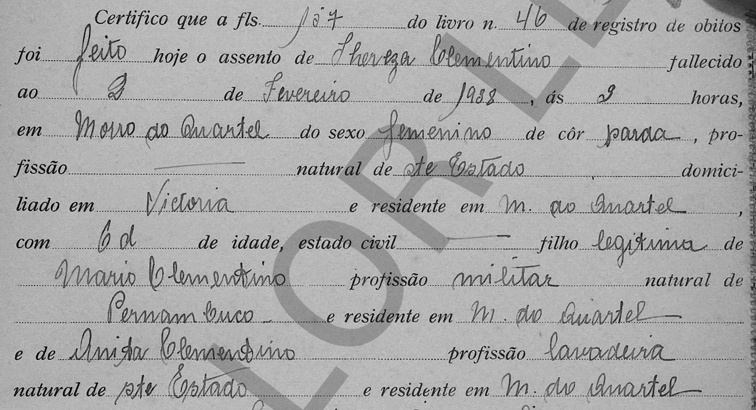 Certifico que a fls. 157 do livro n. 46 de registro de obitos
foi feito hoje o assento de Thereza Clementino fallecido
ao 2 de Fevereiro de 1938, ás 9 horas,
em Morro do Quartel do sexo femenino de côr parda, pro-
fissão natural de ste Estado domici-
liado em Victoria e residente em M. do Quartel,
com 6 d de idade, estado civil filho legitima de
Mario Clementino profissão militar natural de
Pernambuco e residente em M. do Quartel
e de Anita Clementino profissão lavadeira
natural de ste Estado e residente em M. do Quartel